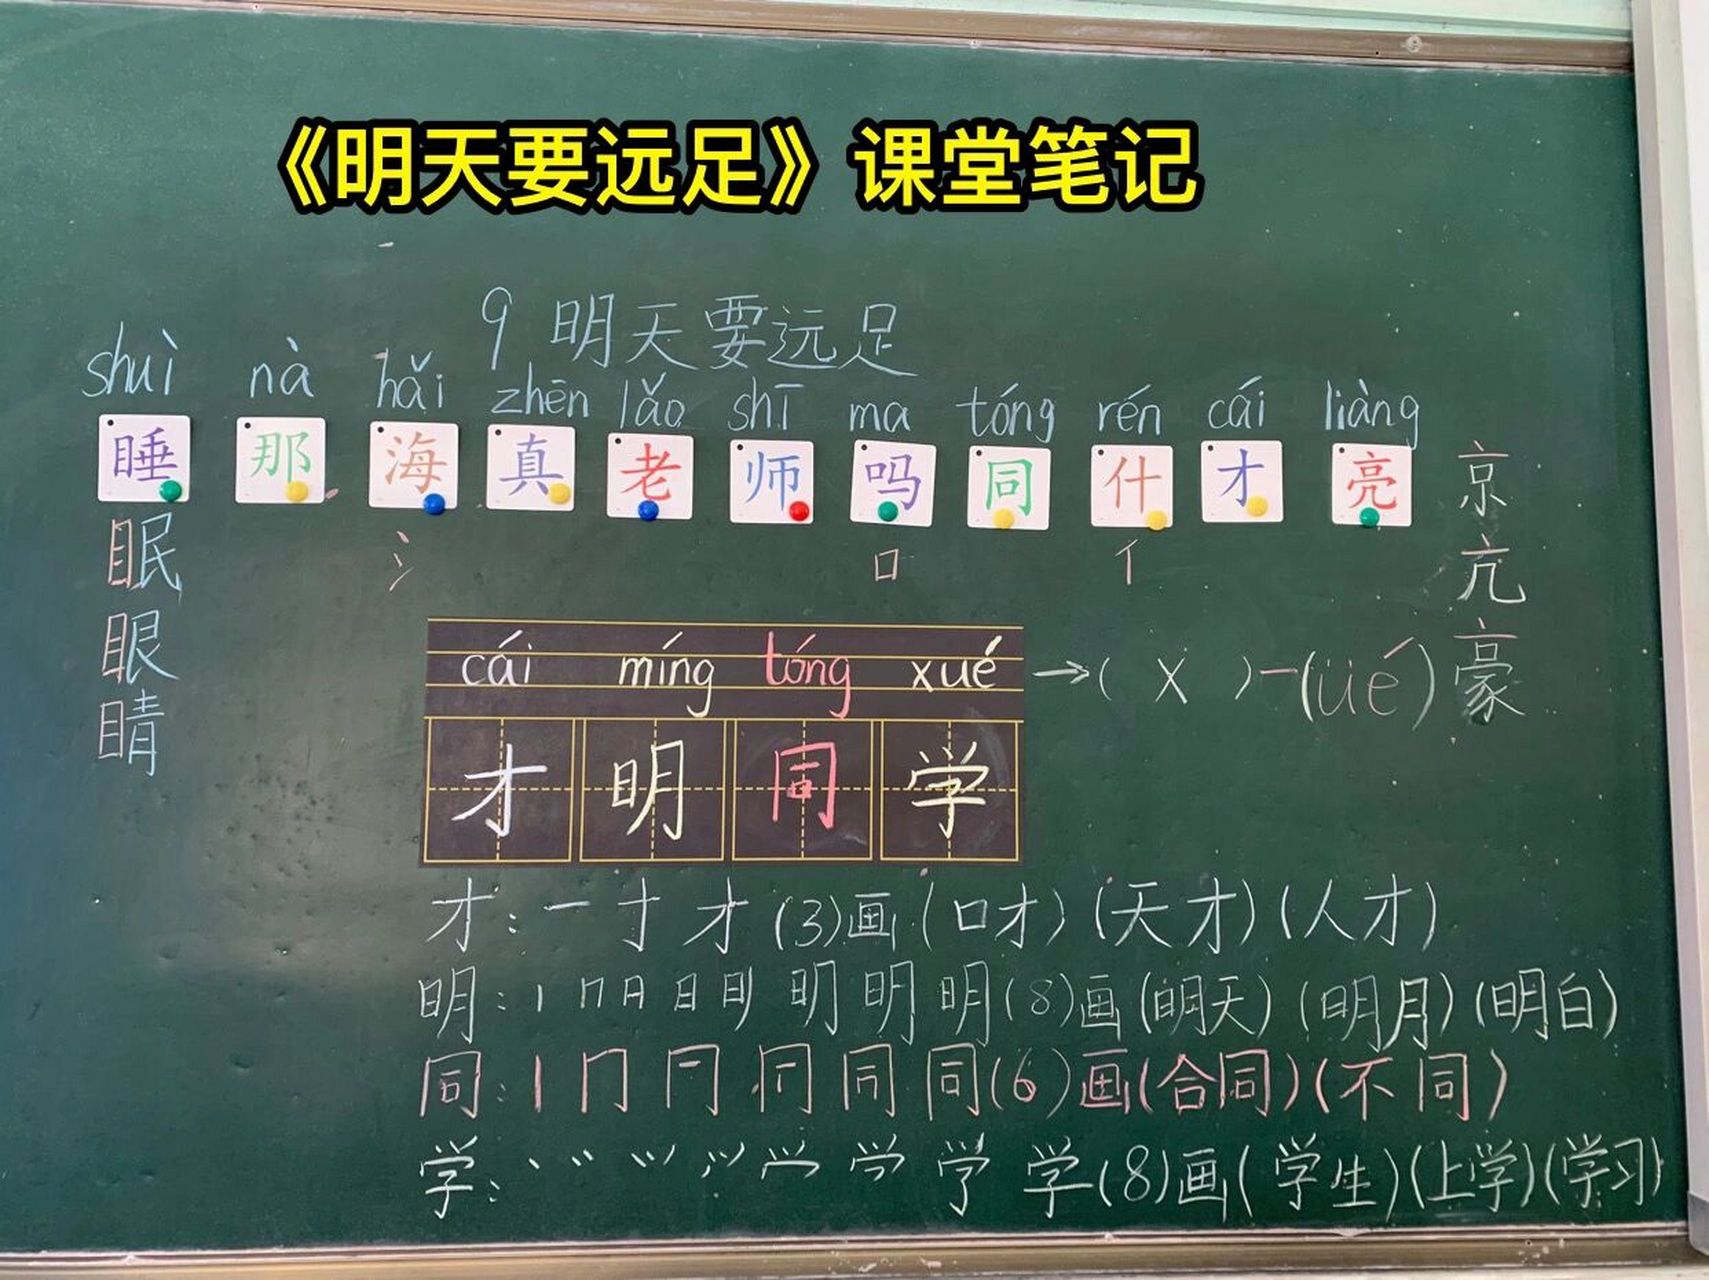 《明天要远足》课堂笔记
9 明天要远足
shuì nà hǎi zhēn lǎo shī ma tóng rén cái liàng
睡 那 海 真 老 师 吗 同 什 才 亮 京
眠 氵 口 亻 亢
眼 cái míng tóng xué →( X )一(üé) 豪
睛 才 明 同 学
才: 一 寸 才 (3)画 (口才) (天才) (人才)
明: 丨 冂 日 日 明 明 明 (8)画 (明天) (明月) (明白)
同: 丨 冂 同 (6)画 (合同) (不同)
学: 丶 学 (8)画 (学生) (上学) (学习)